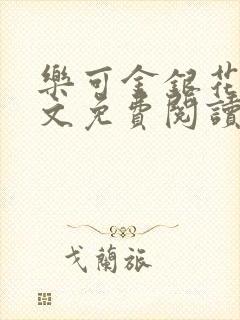 樂可金銀花
文免費閱讀
戈蘭旅